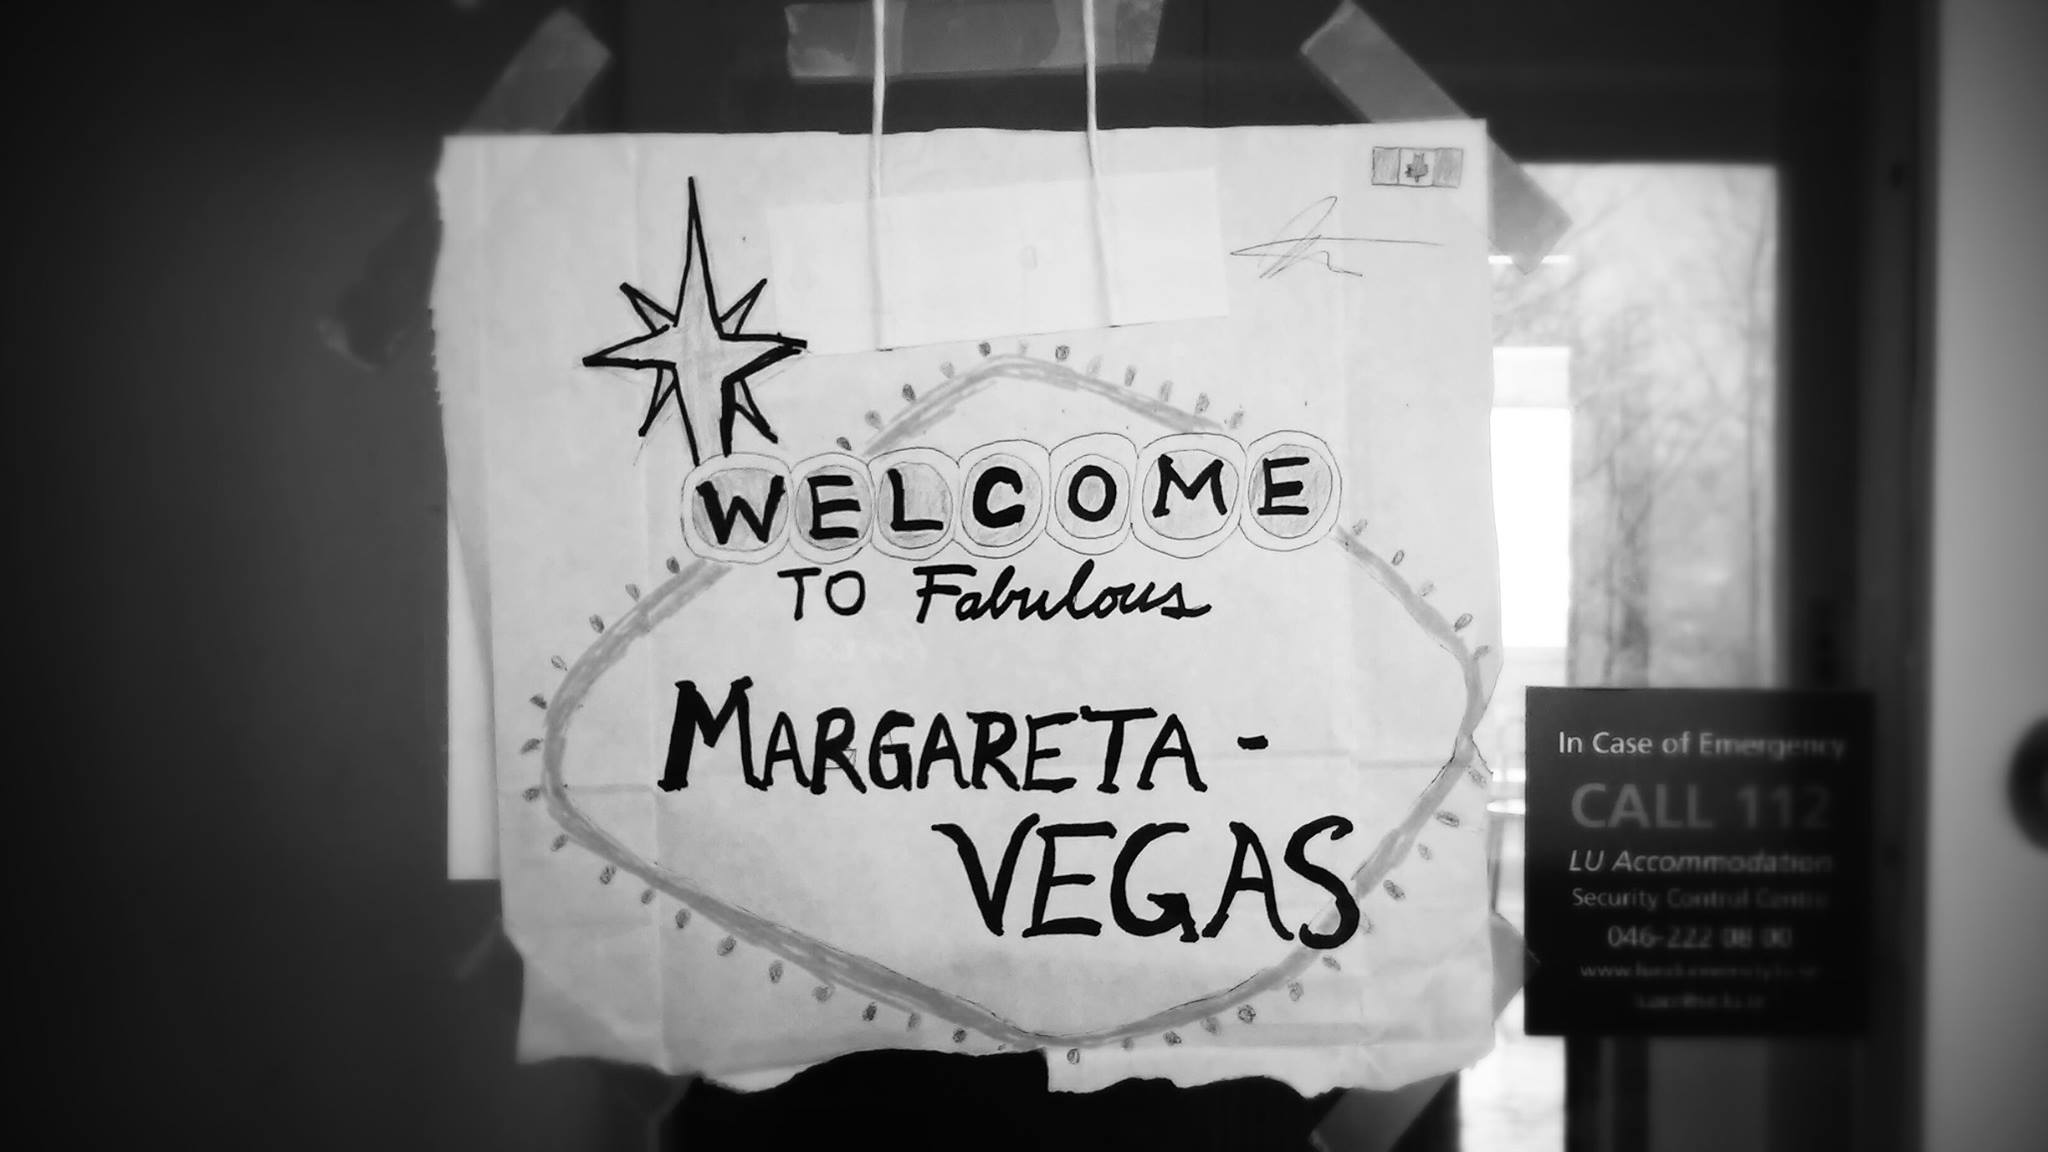 WELCOME
TO Fabulous
MARGARETA -
VEGAS
In Case of Emergency
CALL 112
LU Accommodation
Security Control Centre
046-222